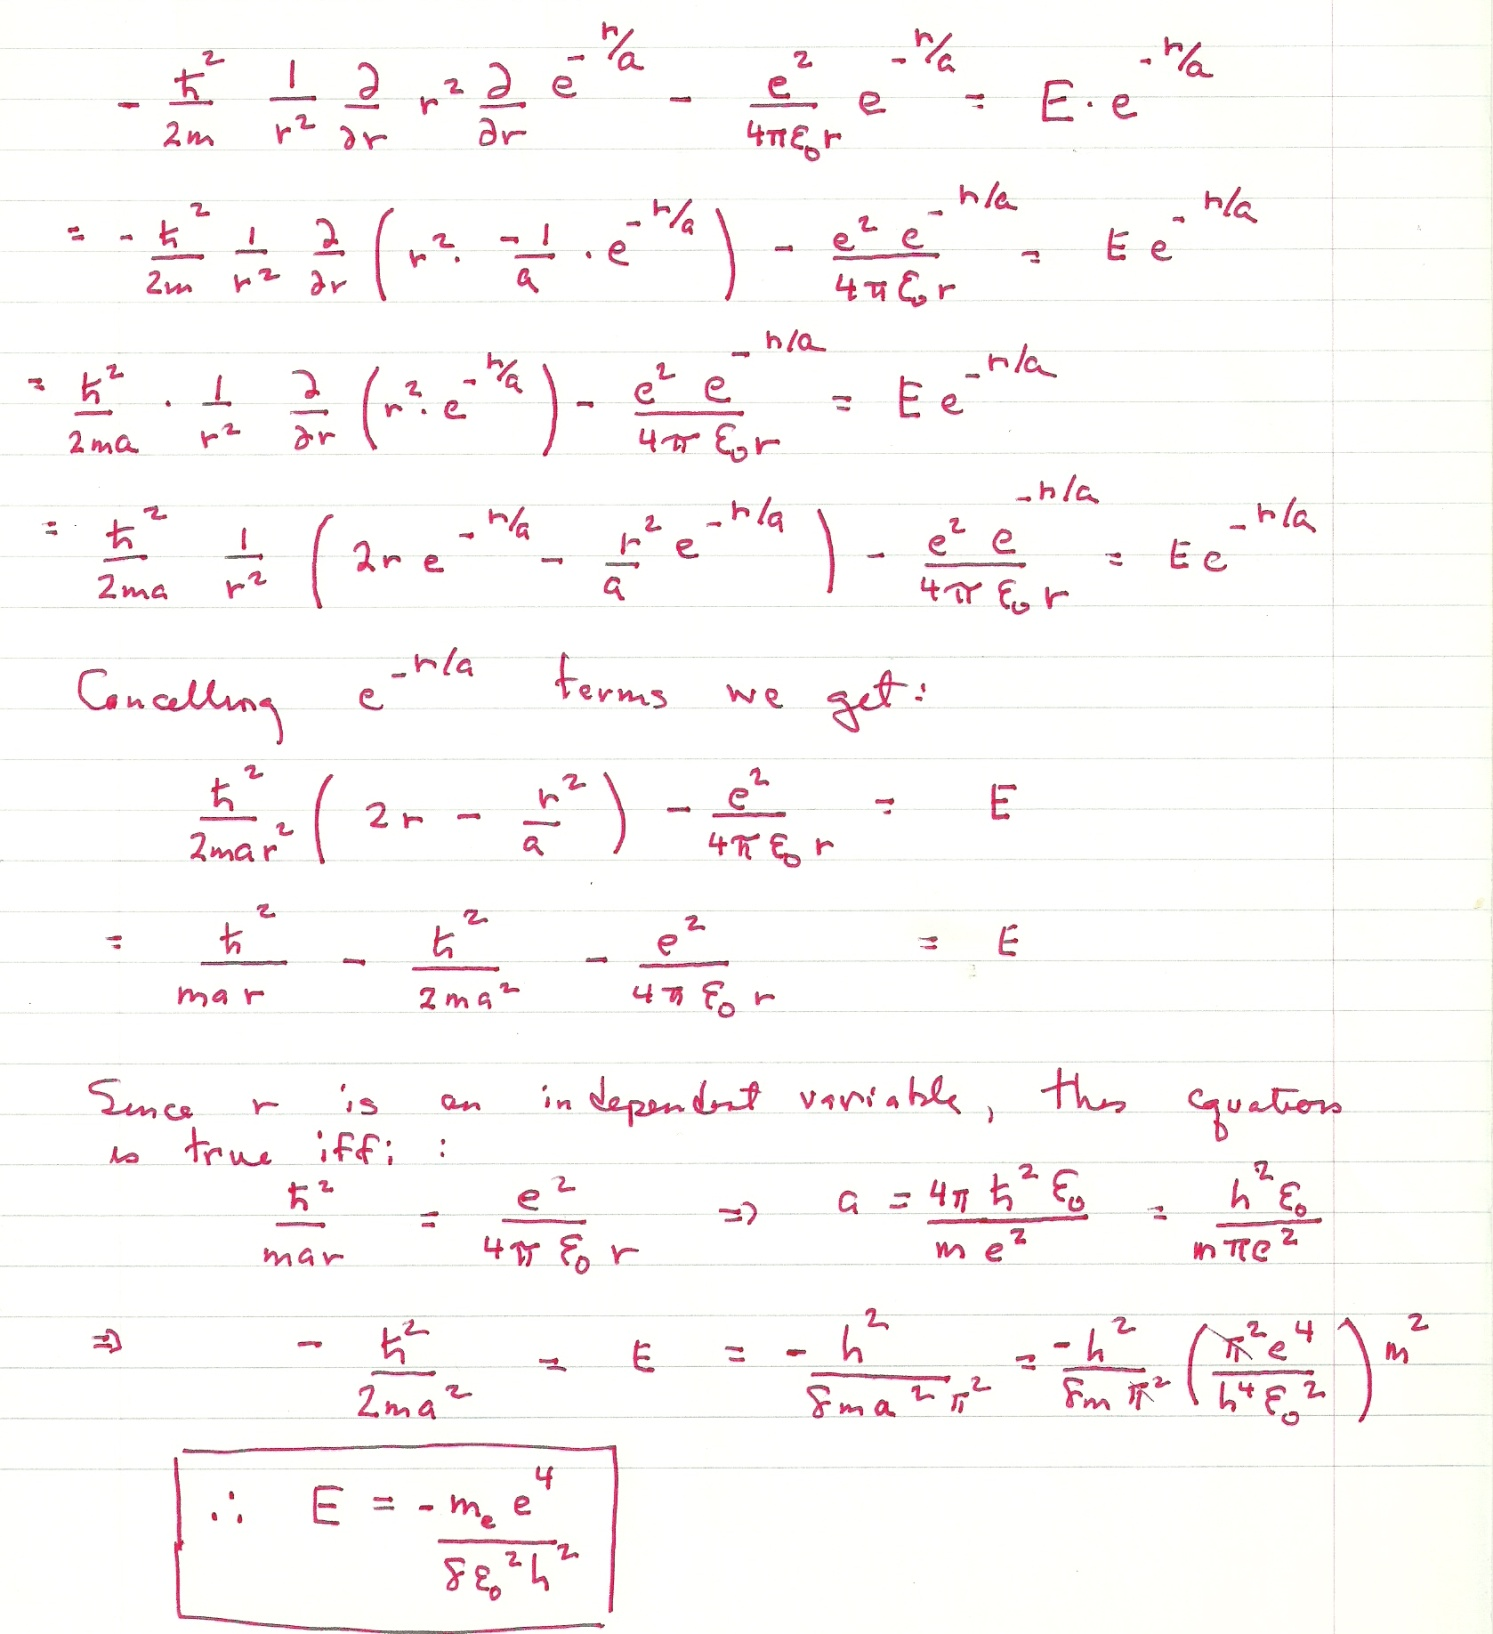 - ħ²/2m 1/r² ∂/∂r r² ∂/∂r e^(-r/a) - e²/(4πε₀r) e^(-r/a) = E · e^(-r/a)
= - ħ²/2m 1/r² ∂/∂r (r² · -1/a · e^(-r/a)) - e² e^(-r/a)/(4πε₀r) = E e^(-r/a)
= ħ²/2ma · 1/r² ∂/∂r (r² · e^(-r/a)) - e² e^(-r/a)/(4πε₀r) = E e^(-r/a)
= ħ²/2ma 1/r² (2r e^(-r/a) - r²/a e^(-r/a)) - e² e^(-r/a)/(4πε₀r) = E e^(-r/a)
Cancelling e^(-r/a) terms we get:
ħ²/2mar² (2r - r²/a) - e²/(4πε₀r) = E
= ħ²/mar - ħ²/2ma² - e²/(4πε₀r) = E
Since r is an independent variable, this equation
is true iff; :
ħ²/mar = e²/(4πε₀r) ⇒ a = 4πħ²ε₀/(me²) = h²ε₀/(mπe²)
⇒ - ħ²/2ma² = E = - h²/(8ma²π²) = -h²/(8mπ²) (π²e⁴/(h⁴ε₀²)) m²
∴ E = - mₑe⁴/(8ε₀²h²)